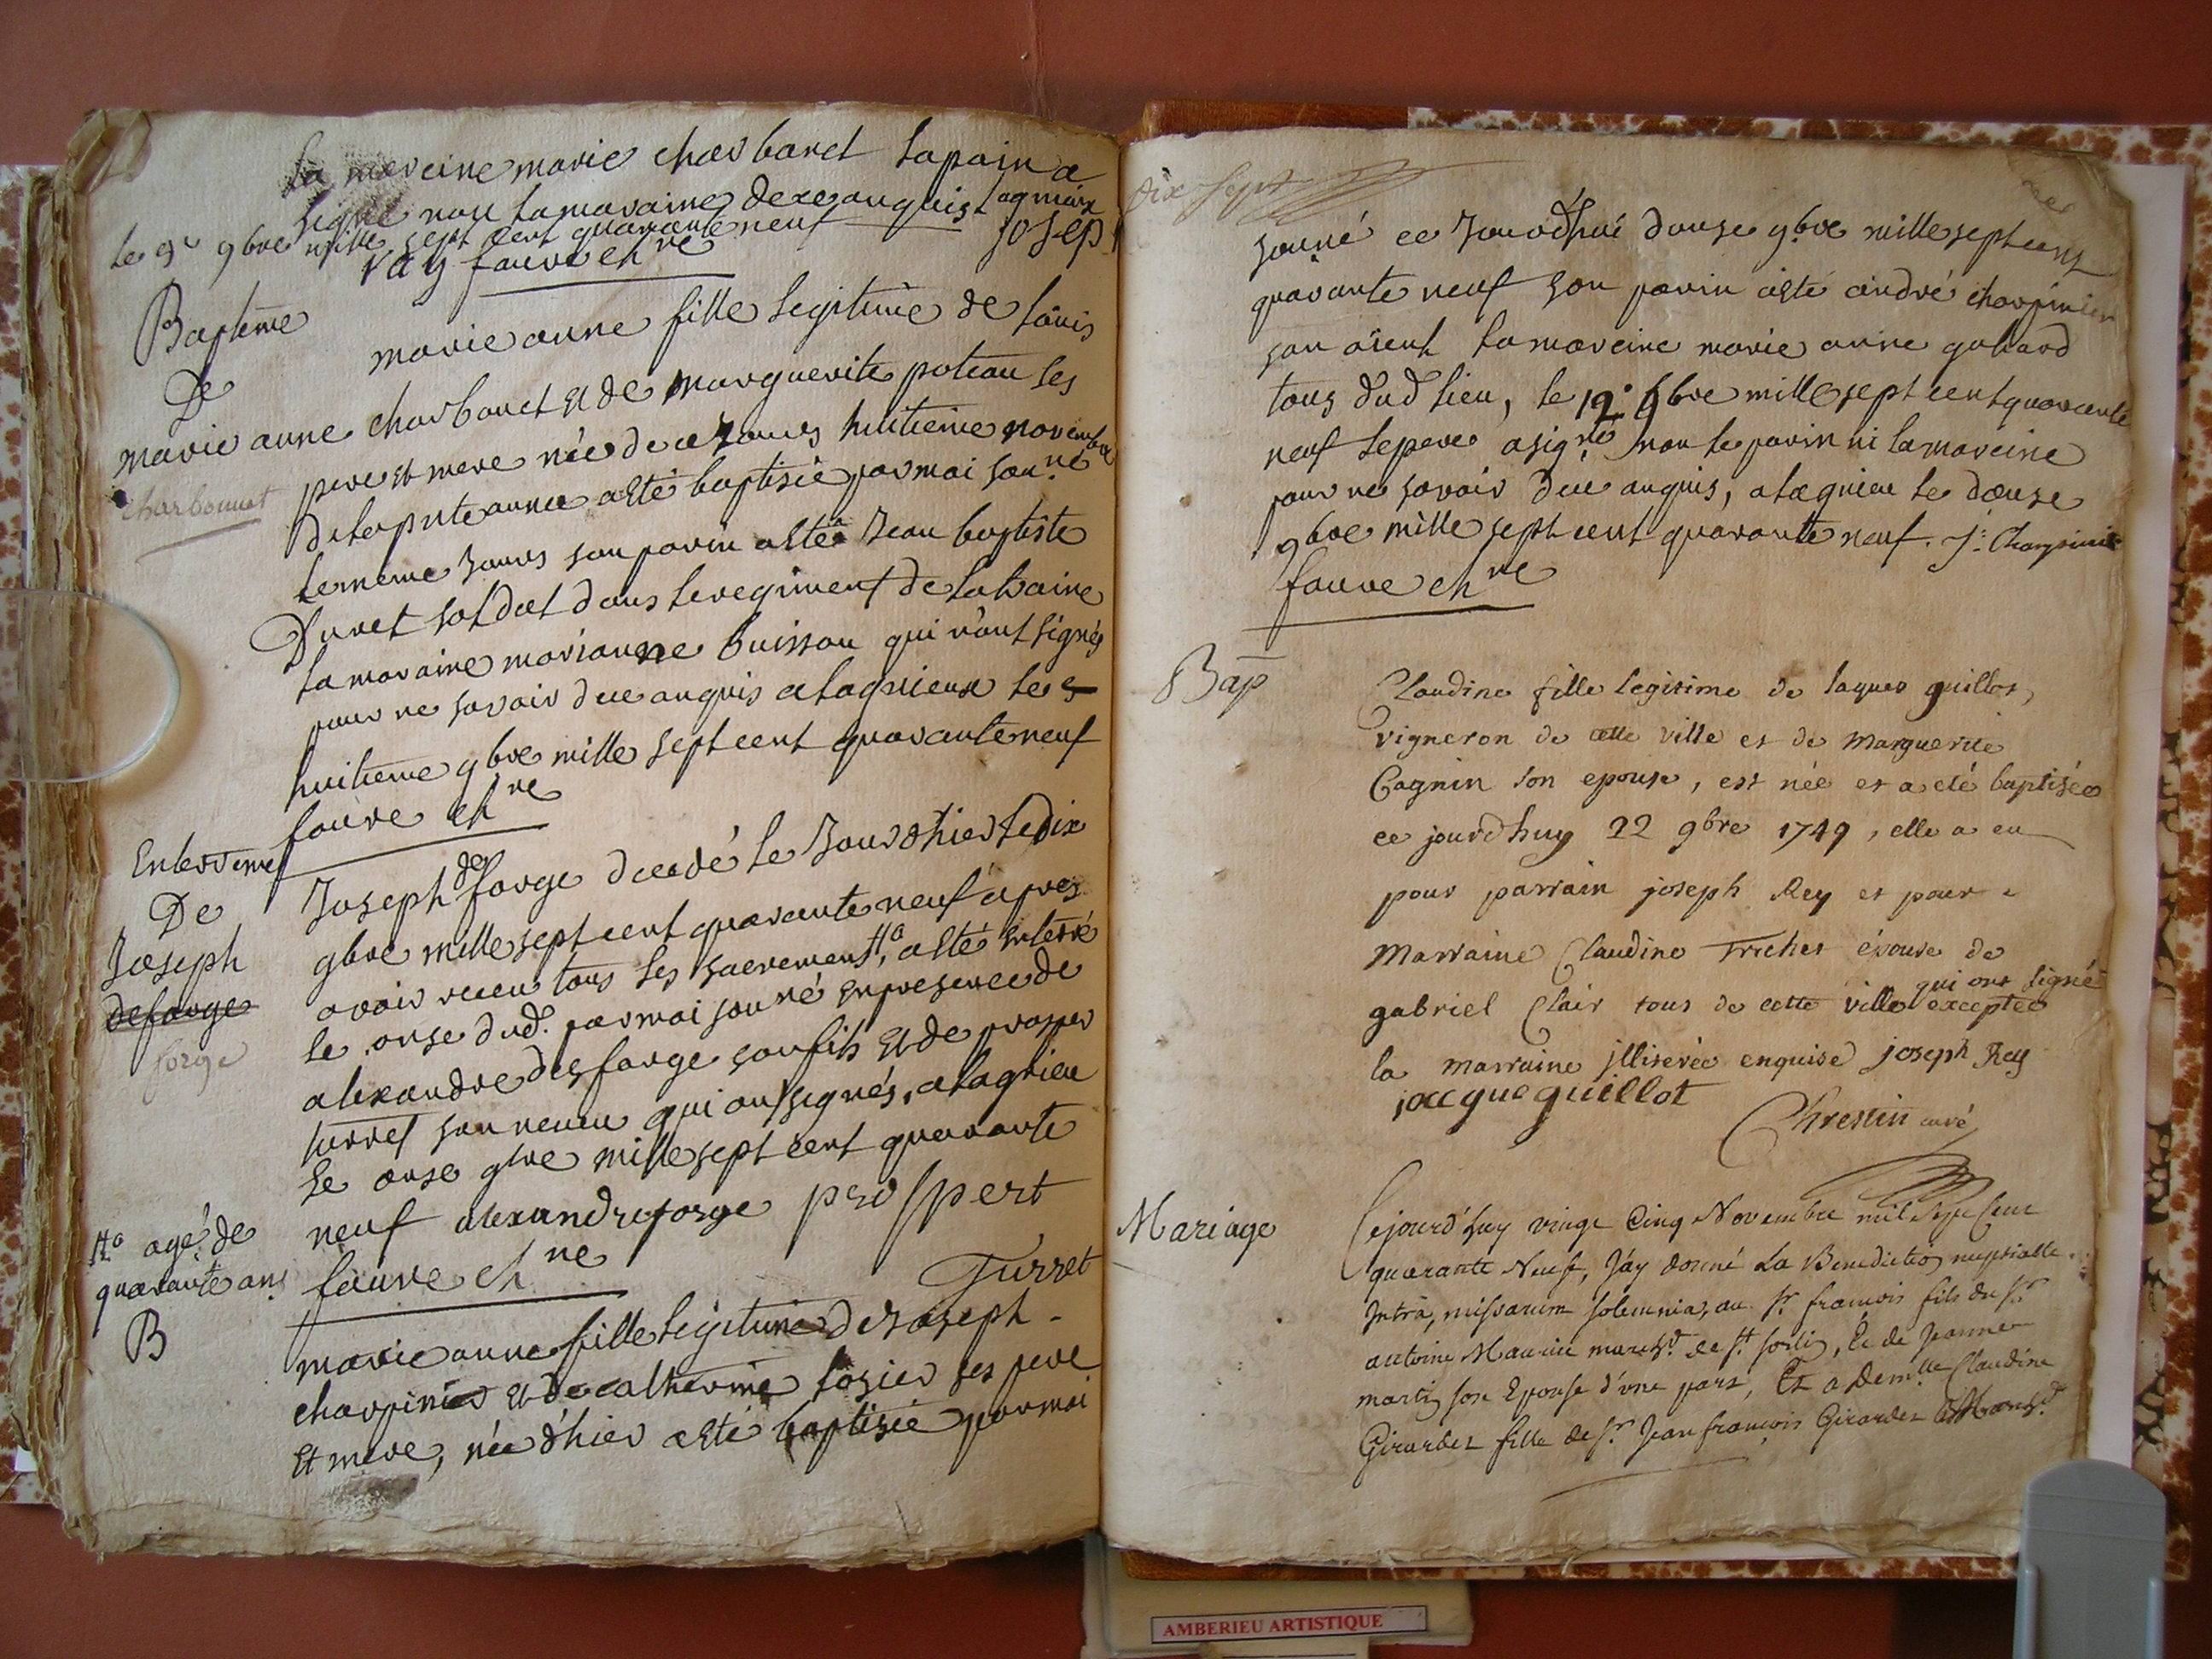 la mareine marie charbonet laparin a
signé non lamaraine dexe anquis lagnieux
le 9e 9bre mille sept cent quarante neuf Josep
ray faure chne
Baptême
De
marie anne
charbonnet
marie anne fille legitime de louis
charbonet et de marguerite poteau ses
pere et mere née de ce Jours huitieme novembre
delapnte annee a été baptisée par moi sounné
lememe Jours son parin a été Jean baptiste
Duret soldat dans le regiment de
la maraine marianne buisson qui n'ont signés
pour ne savoir de ce anquis a lagnieux le
huitieme 9bre mille sept cent quaranteneuf
faure chne
Enterreme
De
Joseph
deforge
forge
Joseph deforge decedé le Jour dhier le dix
9bre mille sept cent quarante neuf apres
avoir receu tous les sacrement, a été enterré
le onse dud. par moi sounné en presence de
alexandre desforge son fils et de prosper
turret son neveu qui ont signés, a lagnieu
le onse 9bre mille sept cent quarante
neuf alexandre forge prospert
Turret
faure chne
agé de
quarante ans
B
marie anne fille legitime de Joseph
charpinier et de catherine losier ses pere
et mere, née d'hier a été baptisée par moi
dix sept
sounné ce Jourdhui douse 9bre mille sept cent
quarante neuf son parin a été andré charpinier
son aieul la mareine marie anne gobard
tous dud lieu, le 12e 9bre mille sept cent quarante
neuf le pere a signé non le parin ni la mareine
pour ne savoir de ce anquis, a lagnieu le douse
9bre mille sept cent quarante neuf. J. Charpinie
faure chne
Bap
Claudine fille legitime de Jaques guillot,
vigneron de cette ville et de Marguerite
Cagnin son epouse, est née et a eté baptisée
ce jourdhuy 22 9bre 1749, elle a eu
pour parrain joseph Rey et pour
Marraine Claudine Trichet épouse de
gabriel Clair tous de cette ville qui ont signé exceptée
la marraine illiterée enquise joseph Rey
jacque guillot
Chrestin curé
Mariage
Cejourd'huy vingt Cinq Novembre mil Sept Cent
quarante Neuf, J'ay donné La Benediction nuptialle
Intrà, missarum solemnia, au Sr francois fils du Sr
antoine Maurin marchd. de St sorlin, Et de Jeanne
martin son Epouse d'une part, Et a Demlle Claudine
Girardet fille de Sr Jean françois Girardet Marchd.